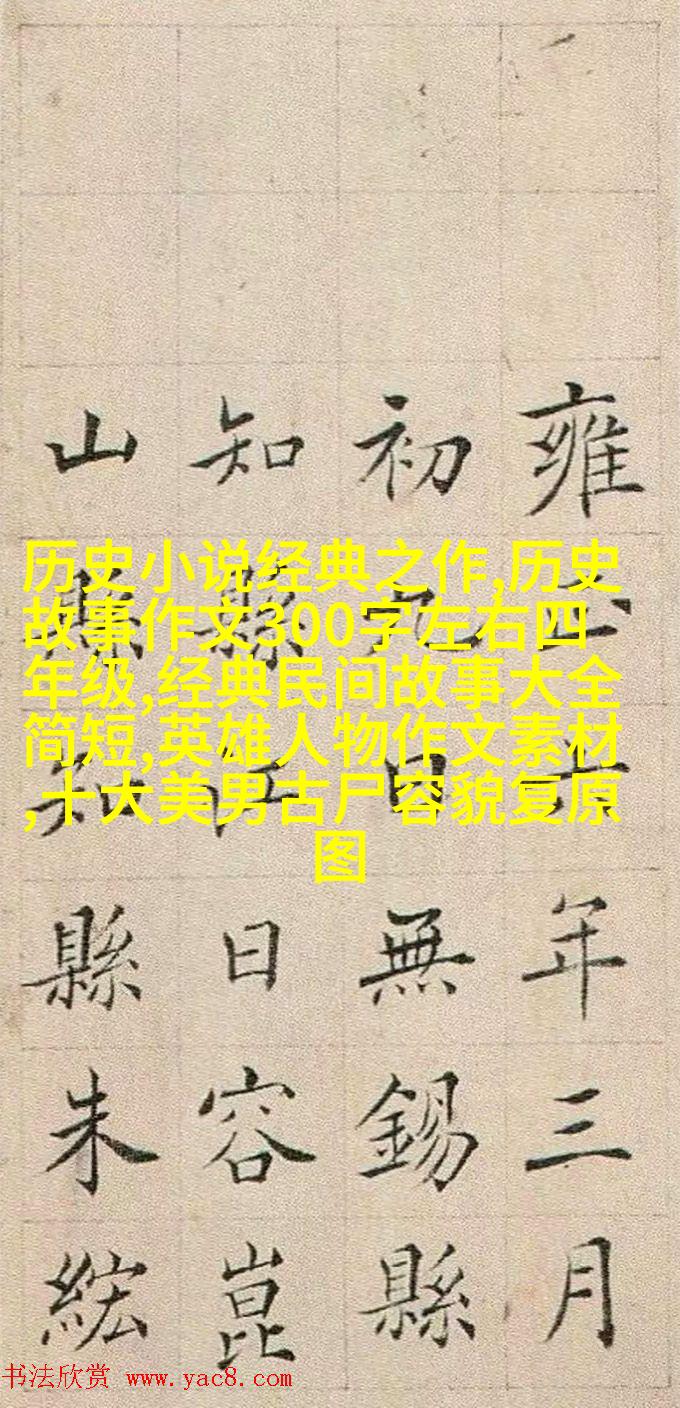 雍正年三月
初九日無錫縣
知縣江日容崑
山縣知縣朱紘
历史小说经典之作,历史
故事作文300字左右四
年级,经典民间故事大全
简短,英雄人物作文素材
,十大美男古尸容貌复原
图
书法欣赏 www.yac8.com